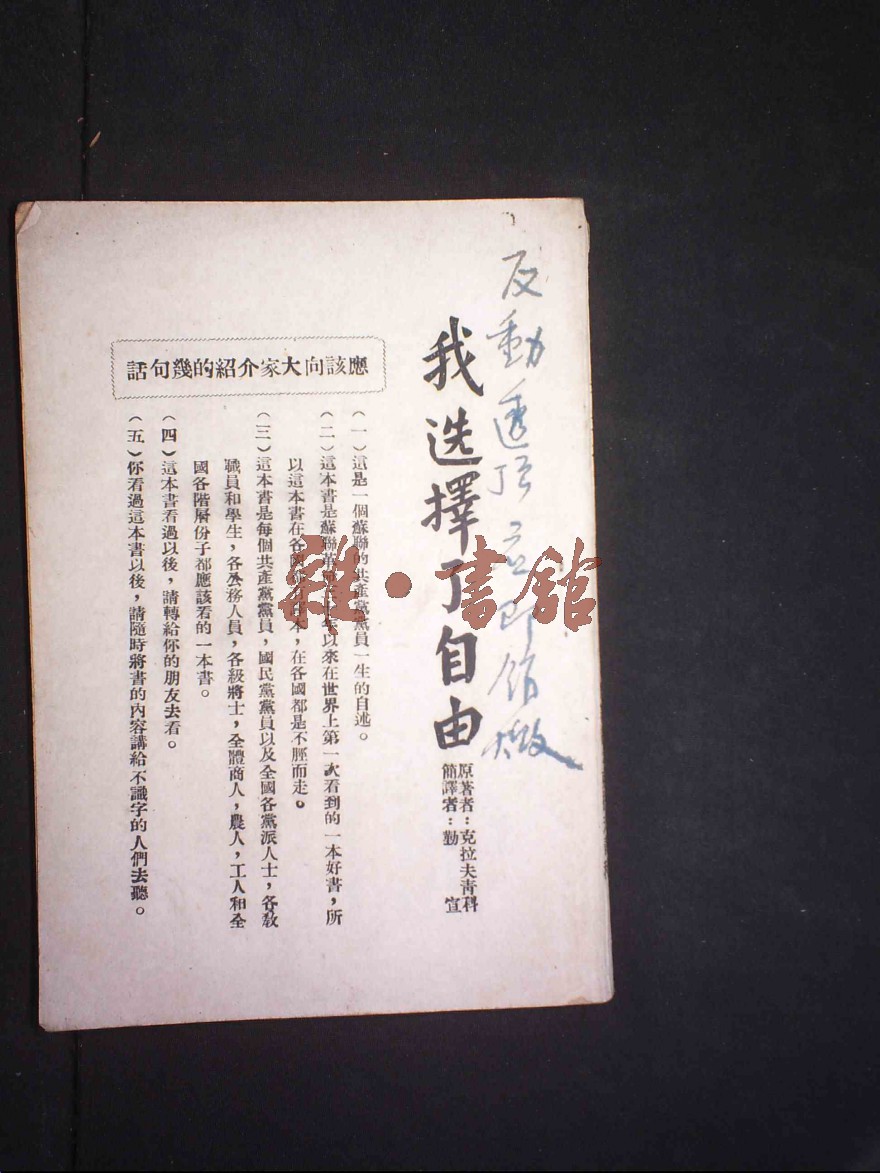 反動透頂应即銷燬
我选擇了自由
原著者：克拉夫青科
簡譯者：勤 宣
應該向大家介紹的幾句話
（一）這是一個蘇聯的共產黨黨員一生的自述。
（二）這本書是蘇聯革以來在世界上第一次看到的一本好書，所
以這本書在各國本，在各國都是不脛而走。
（三）這本書是每個共產黨黨員，國民黨黨員以及全國各黨派人士，各教
職員和學生，各公務人員，各級將士，全體商人，農人，工人和全
國各階層份子都應該看的一本書。
（四）這本書看過以後，請轉給你的朋友去看。
（五）你看過這本書以後，請隨時將書的內容講給不識字的人們去聽。
雜·書館